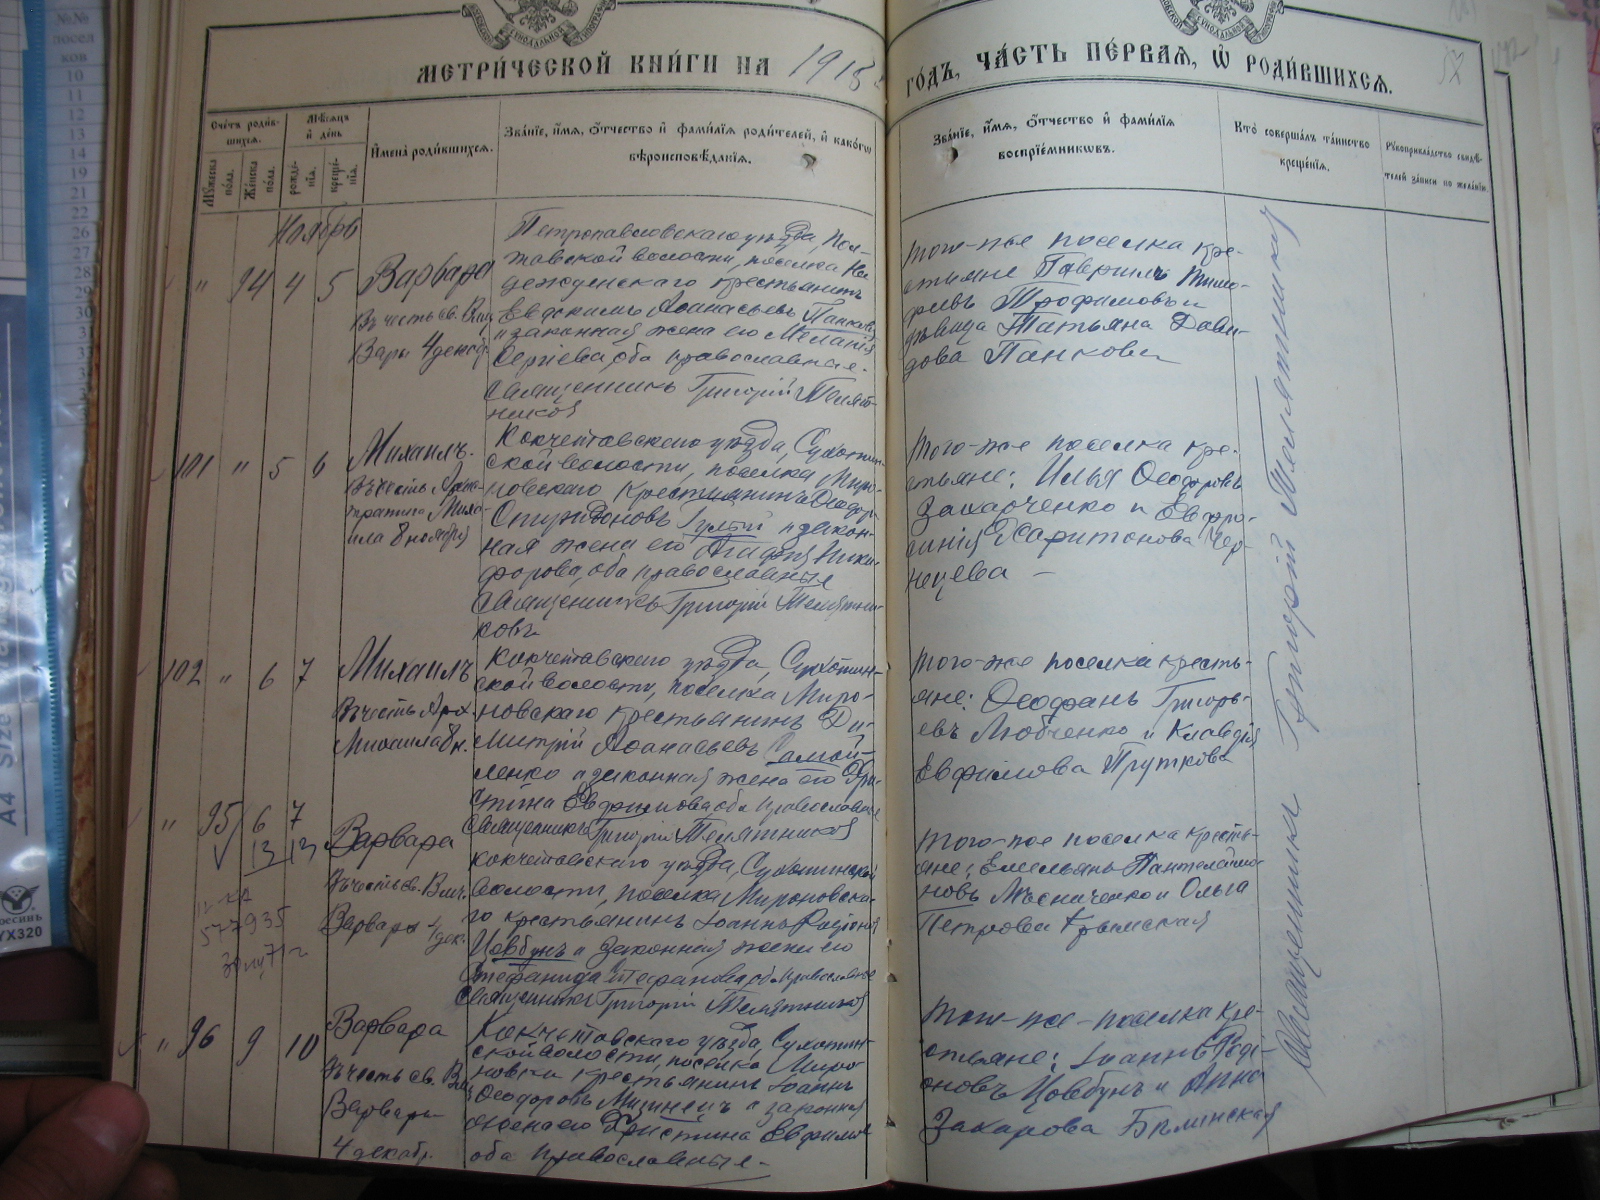 МЕТРИ́ЧЕСКОЙ КНИ́ГИ НА 1918
ГО́ДЪ, ЧА́СТЬ ПЕ́РВАѦ, Ѡ҆ РОДИ́ВШИХСѦ.
Сче́тъ роди́в-
шихсѧ.
Мѣ́сѧцъ
и҆ де́нь
Мꙋ́жеска по́ла.
Же́нска по́ла.
рожде́-
нїѧ.
креще́-
нїѧ.
И҆мена̀ роди́вшихсѧ.
Зва́нїе, и҆́мѧ, ѻ҆́тчество и҆ фами́лїѧ роди́телей, и҆ како́гѡ
вѣроисповѣ́данїѧ.
Зва́нїе, и҆́мѧ, ѻ҆́тчество и҆ фами́лїѧ
воспрїе́мниковъ.
Кто̀ соверша́лъ та́инство
креще́нїѧ.
Рꙋкоприкла́дство свидѣ́-
телей за́писи по жела́нїю
Ноябрь
" 94 4 5
Варвара
Въ честь св. Вмц.
Варв. 4 декаб.
Петропавловскаго уѣзда, Пол-
тавской волости, поселка На-
деждинскаго крестьянинъ
Евдокимъ Аѳанасьевъ Панковъ
и законная жена его Меланія
Сергіева, оба православные.
Священникъ Григорій Телят-
никовъ
того-же поселка кре-
стьяне Гавріилъ Тимо-
феевъ Трофимовъ и
дѣвица Татьяна Дави-
дова Панкова
101 " 5 6
Михаилъ.
Въ честь Архи-
стратига Миха-
ила 8 ноября
Кокчетавскаго уѣзда, Сухотин-
ской волости, поселка Миро-
новскаго крестьянинъ Ѳеодоръ
Спиридоновъ и закон-
ная жена его Агафія Ники-
форова, оба православные
Священникъ Григорій Телятни-
ковъ
того-же поселка кре-
стьяне: Илья Ѳеодоровъ
Захарченко и Евфро-
синія Харитонова Чер-
нецева
102 " 6 7
Михаилъ
Въ честь Арх.
Михаила 8 н.
Кокчетавскаго уѣзда, Сухотин-
ской волости, поселка Миро-
новскаго крестьянинъ Ди-
митрій Аѳанасьевъ Самой-
ленко и законная жена его Хри-
стина Евфимова, оба православные
Священникъ Григорій Телятниковъ
того-же поселка кресть-
яне: Ѳеофанъ Григорь-
евъ Любченко и Клавдія
Евфимова Пруткова
" 95 6 7
13 13
577935
Варвара
Въ честь св. Вмч.
Варвары 4 дек.
Кокчетавскаго уѣзда, Сухотинской
волости, поселка Мироновска-
го крестьянинъ Іоаннъ Родіоновъ
Цовбунъ и законная жена его
Стефанида Стефанова, оба православные
Священникъ Григорій Телятниковъ
того-же поселка кресть-
яне: Емельянъ Пантелеймо-
новъ Мѣсниченко и Ольга
Петрова Крымская
" 96 9 10
Варвара
Въ честь св. Вмц
Варвары
4 декабр.
Кокчетавскаго уѣзда, Сухотин-
ской волости, поселка Миро-
новки крестьянинъ Іоаннъ
Ѳеодоровъ и законная
жена его Христина Евфимова
оба православные.
того-же поселка кре-
стьяне: Іоаннъ Роді-
оновъ Цовбунъ и Анна
Захарова Бѣлинская
Священникъ Григорій Телятниковъ
№№
посел
ков
10
11
12
13
14
19
21
22
26
27
28
29
30
A4 Size
YX320